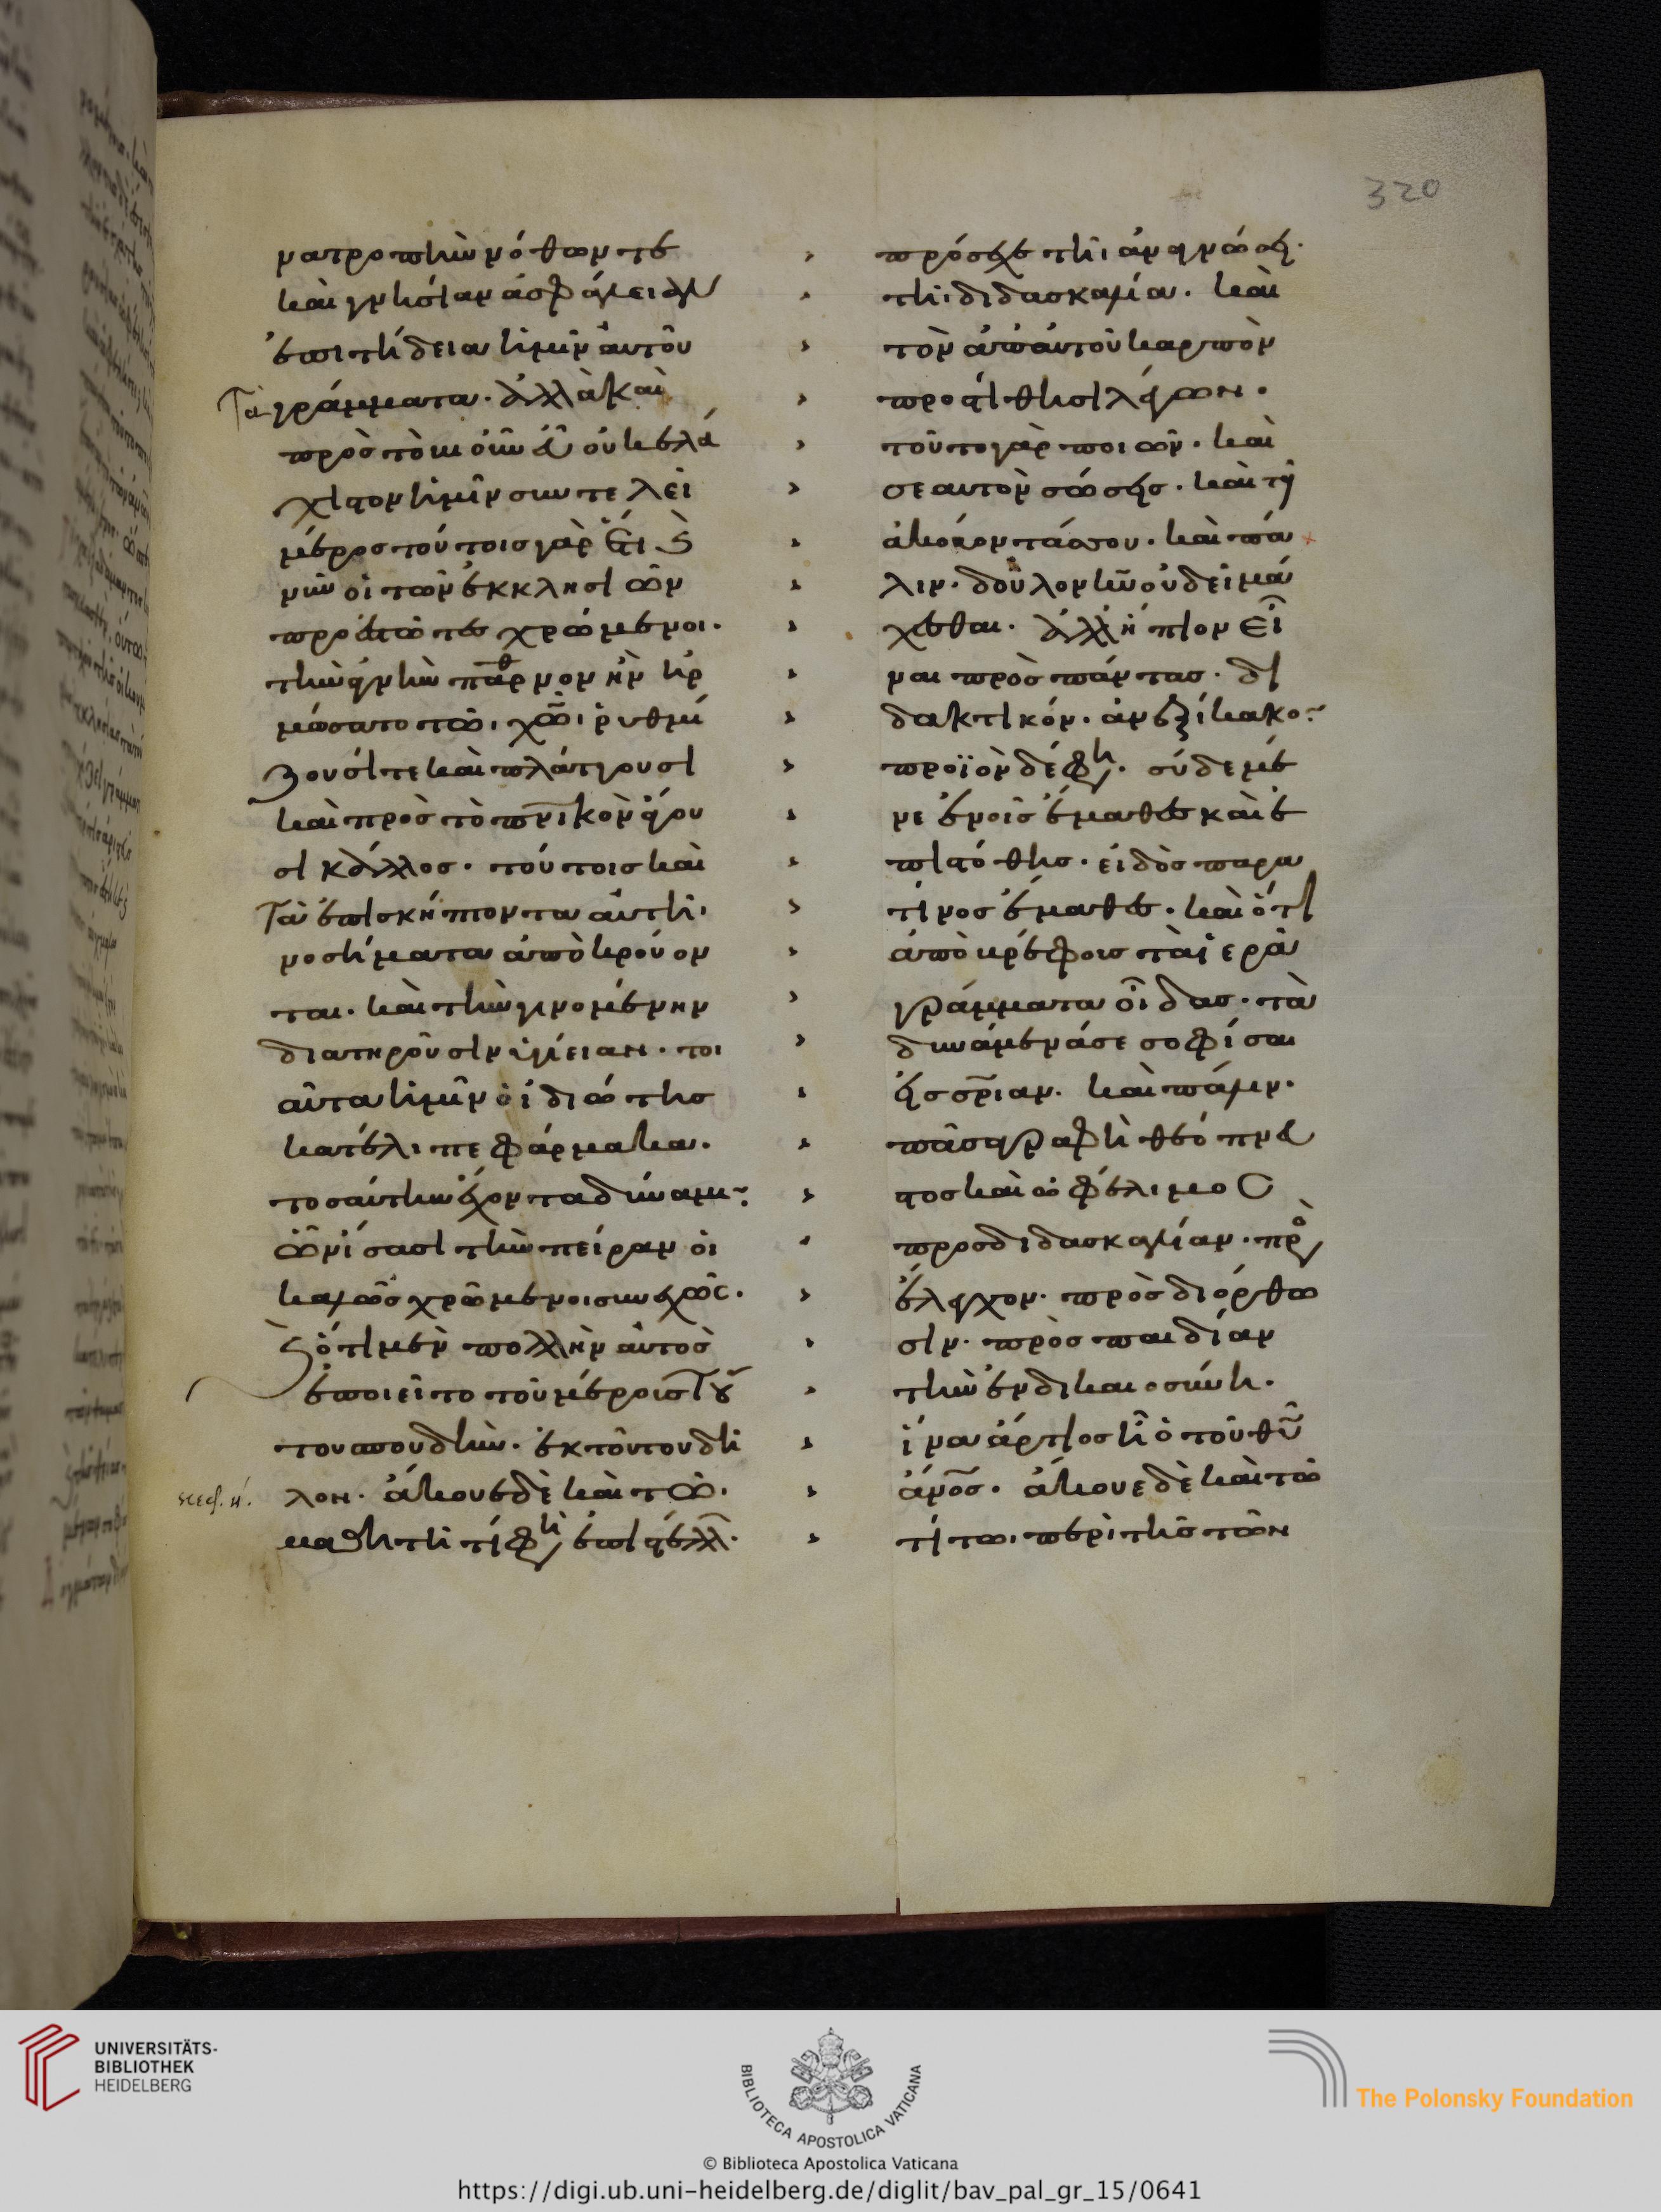 νατροπὴν νόθων τε
καὶ γνησίαν ἀσφάλειαν
ἐπιτήδεια ἡμῖν αὐτοῦ
Τὰ γράμματα. ἀλλὰ καὶ
πρὸς τὸ βιοῦν εὖ οὐκ ἐλά
χιστον ἡμῖν συντελεῖ
μέρος τούτοις γὰρ ἔτι ϗ̀
νῦν οἱ τῶν ἐκκλησιῶν
προεστῶτες χρώμενοι.
τὴν ἁγνὴν παρθνον ἣν ἡρ
μώσατο τῶι χῶι ῥυθμί
ζουσί τε καὶ πλάττουσι
καὶ πρὸς τὸ πνικὸν ἄγου
σι κάλλος. τούτοις καὶ
Τὰ ἐπισκήπτοντα αὐτῆι
νοσήματα ἀποκρούον
ται. καὶ τὴν γινομένην
διατηροῦσιν ὑγίειαν. τοι
αῦτα ἡμῖν ὁ ἰδιώτης
κατέλιπε φάρμακα.
τοσαύτην ἔχοντα δύναμιν.
ὧν ἴσασι τὴν πεῖραν οἱ
καλῶς χρώμενοι συνεχῶς.
ϗ̀ ὅτι μὲν πολλὴν αὐτὸς
ἐποιεῖτο τοῦ μέρους τού
του σπουδὴν. ἐκ τούτου δῆ
λον. ἄκουε δὲ καὶ τῶι
μαθητῆ τί φη ἐπιστέλλ.
320
πρόσεχε τῆι ἀναγνώσει.
τῆι διδασκαλία. καὶ
τὸν ἀπ' αὐτοῦ καρπὸν
προστίθησι λέγων.
τοῦτο γὰρ ποιῶν. καὶ
σεαυτὸν σώσεις. καὶ τοὺς
ἀκούοντάς σου. καὶ πά
λιν. δοῦλον κῦ οὐ δεῖ μά
χεσθαι. ἀλλ' ἤπιον εἶ
ναι πρὸς πάντας. δι
δακτικόν. ἀνεξίκακον.
προϊὸν δέ φη. σὺ δὲ μέ
νε ἐν οἷς ἔμαθες καὶ ἐ
πιστόθης. εἰδὸς παρα
τίνος ἔμαθες. καὶ ὅτι
ἀπὸ βρέφους τὰ ἱερὰ
γράμματα οἶδας. τὰ
δυνάμενά σε σοφίσαι
εἰς σρίαν. καὶ πάλιν.
πᾶσα γραφὴ θεόπνευ
στος καὶ ὠφέλιμος
προς διδασκαλίαν. πρὸς
ἔλεγχον. πρὸς διόρθω
σιν. πρὸς παιδίαν
τὴν ἐν δικαιοσύνη.
ἵνα ἄρτιος ἦ ὁ τοῦ θῦ
ἄνος. ἄκουε δὲ καὶ τῶ
τίτωι περὶ τῆς τῶν
UNIVERSITÄTS-
BIBLIOTHEK
HEIDELBERG
BIBLIOTECA APOSTOLICA VATICANA
The Polonsky Foundation
© Biblioteca Apostolica Vaticana
https://digi.ub.uni-heidelberg.de/diglit/bav_pal_gr_15/0641